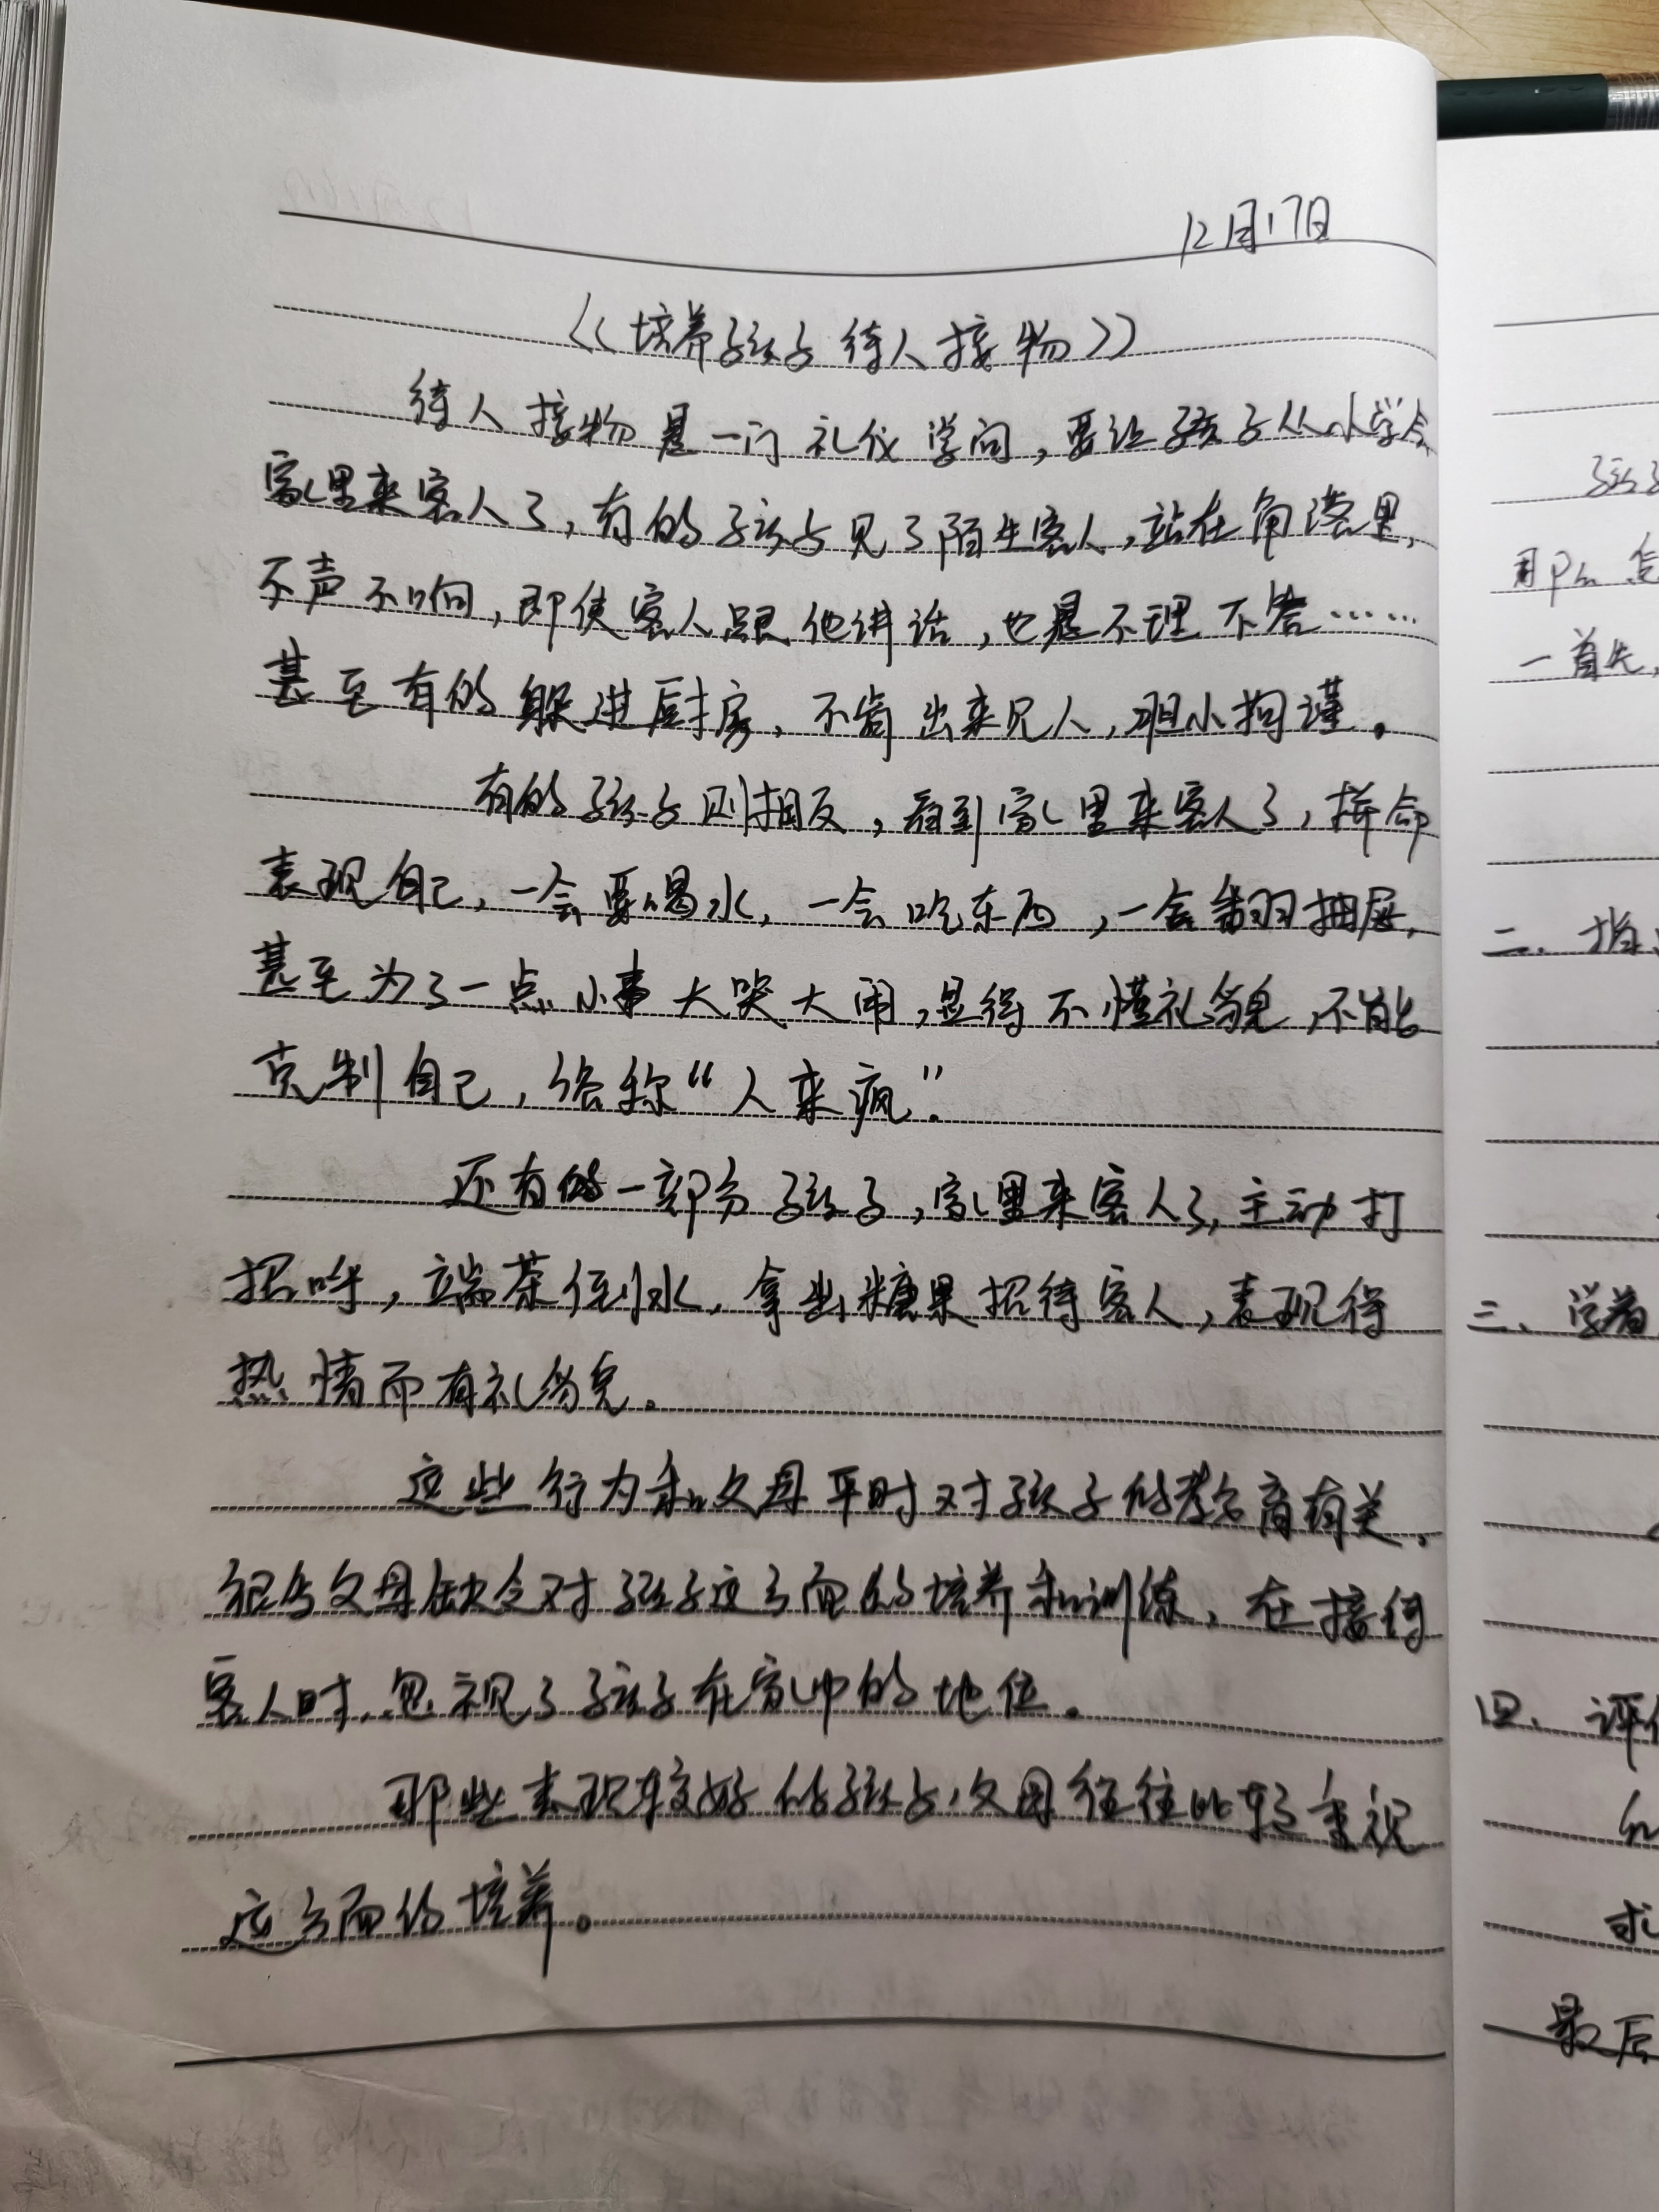 12月17日
《培养孩子待人接物》
待人接物是一门礼仪学问，要让孩子从小学会
家里来客人了，有的孩子见了陌生客人，站在角落里，
不声不响，即使客人跟他讲话，也是不理不答……
甚至有的躲进厨房，不肯出来见人，胆小拘谨。
有的孩子则相反，看到家里来客人了，拼命
表现自己，一会要喝水，一会吃东西，一会翻抽屉，
甚至为了一点小事大哭大闹，显得不懂礼貌，不能
克制自己，俗称“人来疯”。
还有的一部分孩子，家里来客人了，主动打
招呼，端茶倒水，拿出糖果招待客人，表现得
热情而有礼貌。
这些行为和父母平时对孩子的教育有关，
很多父母缺乏对孩子这方面的培养和训练，在接待
客人时，忽视了孩子在家中的地位。
那些表现较好的孩子，父母往往比较重视
这方面的培养。
一首先，
二、指
三、学着
四、评价
求
最后